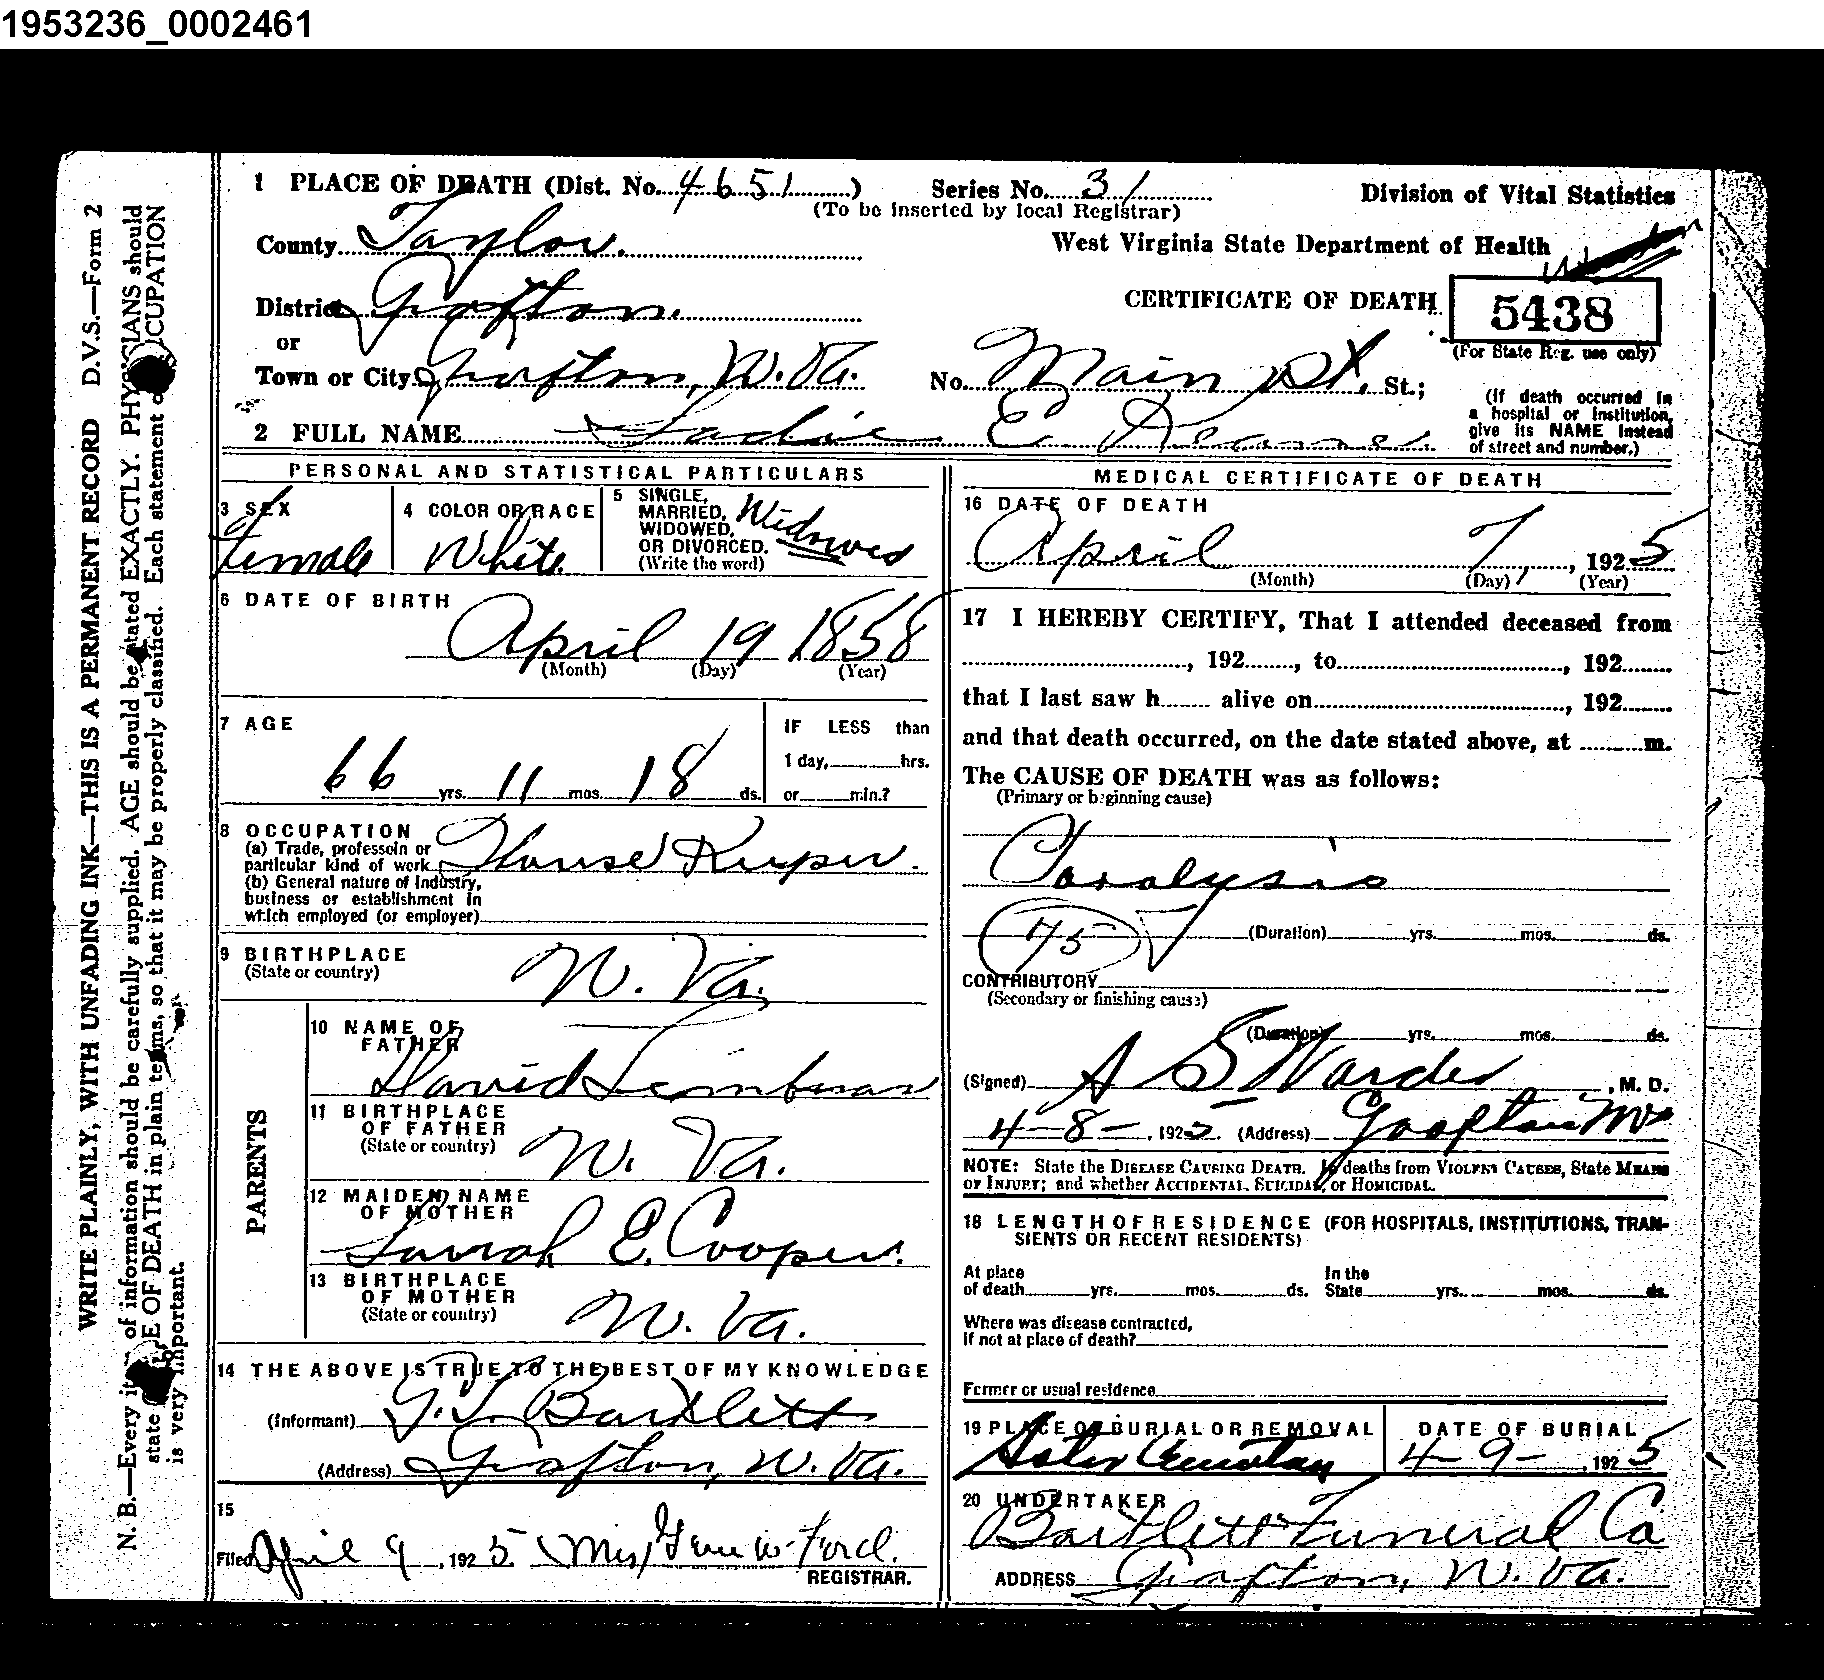 1953236_0002461
1 PLACE OF DEATH (Dist. No. 4651) Series No. 31 Division of Vital Statistics
(To be inserted by local Registrar)
County Taylor. West Virginia State Department of Health
District Grafton. CERTIFICATE OF DEATH 5438
or (For State Reg. use only)
Town or City Grafton, W. Va. No. Main St. St.;
(If death occurred in a hospital or institution, give its NAME instead of street and number.)
2 FULL NAME Sadie E
PERSONAL AND STATISTICAL PARTICULARS
3 SEX
female
4 COLOR OR RACE
White
5 SINGLE, MARRIED, WIDOWED, OR DIVORCED. (Write the word)
Widowed
6 DATE OF BIRTH
April 19 1858
(Month) (Day) (Year)
7 AGE
66 yrs. 11 mos. 18 ds.
IF LESS than
1 day, hrs.
or min.?
8 OCCUPATION
(a) Trade, professoin or
particular kind of work House Keeper.
(b) General nature of Industry,
business or establishment in
which employed (or employer)
9 BIRTHPLACE
(State or country)
W. Va.
PARENTS
10 NAME OF FATHER
David
11 BIRTHPLACE OF FATHER
(State or country)
W. Va.
12 MAIDEN NAME OF MOTHER
Sarrah E. Cooper.
13 BIRTHPLACE OF MOTHER
(State or country)
W. Va.
14 THE ABOVE IS TRUE TO THE BEST OF MY KNOWLEDGE
(Informant) Bartlett
(Address) Grafton, W. Va.
15
Filed April 9, 1925. Ford.
REGISTRAR.
MEDICAL CERTIFICATE OF DEATH
16 DATE OF DEATH
April 7, 1925
(Month) (Day) (Year)
17 I HEREBY CERTIFY, That I attended deceased from
, 192 , to , 192
that I last saw h alive on , 192
and that death occurred, on the date stated above, at m.
The CAUSE OF DEATH was as follows:
(Primary or beginning cause)
Paralysis
75
(Duration) yrs. mos. ds.
CONTRIBUTORY
(Secondary or finishing cause)
(Duration) yrs. mos. ds.
(Signed) A S Warder, M. D.
4-8-, 1925. (Address) Grafton
NOTE: State the DISEASE CAUSING DEATH. In deaths from VIOLENT CAUSES, State MEANS
OF INJURY; and whether ACCIDENTAL, SUICIDAL, or HOMICIDAL.
18 LENGTH OF RESIDENCE (FOR HOSPITALS, INSTITUTIONS, TRAN-
SIENTS OR RECENT RESIDENTS)
At place of death yrs. mos. ds. In the State yrs. mos. ds.
Where was disease contracted,
if not at place of death?
Former or usual residence
19 PLACE OF BURIAL OR REMOVAL
Cemetary
DATE OF BURIAL
4-9-, 1925
20 UNDERTAKER
Bartlett Funeral Co
ADDRESS Grafton, W. Va.
WRITE PLAINLY, WITH UNFADING INK—THIS IS A PERMANENT RECORD D.V.S.—Form 2
N. B.—Every item of information should be carefully supplied. AGE should be stated EXACTLY. PHYSICIANS should
state CAUSE OF DEATH in plain terms, so that it may be properly classified. Each statement of OCCUPATION
is very important.